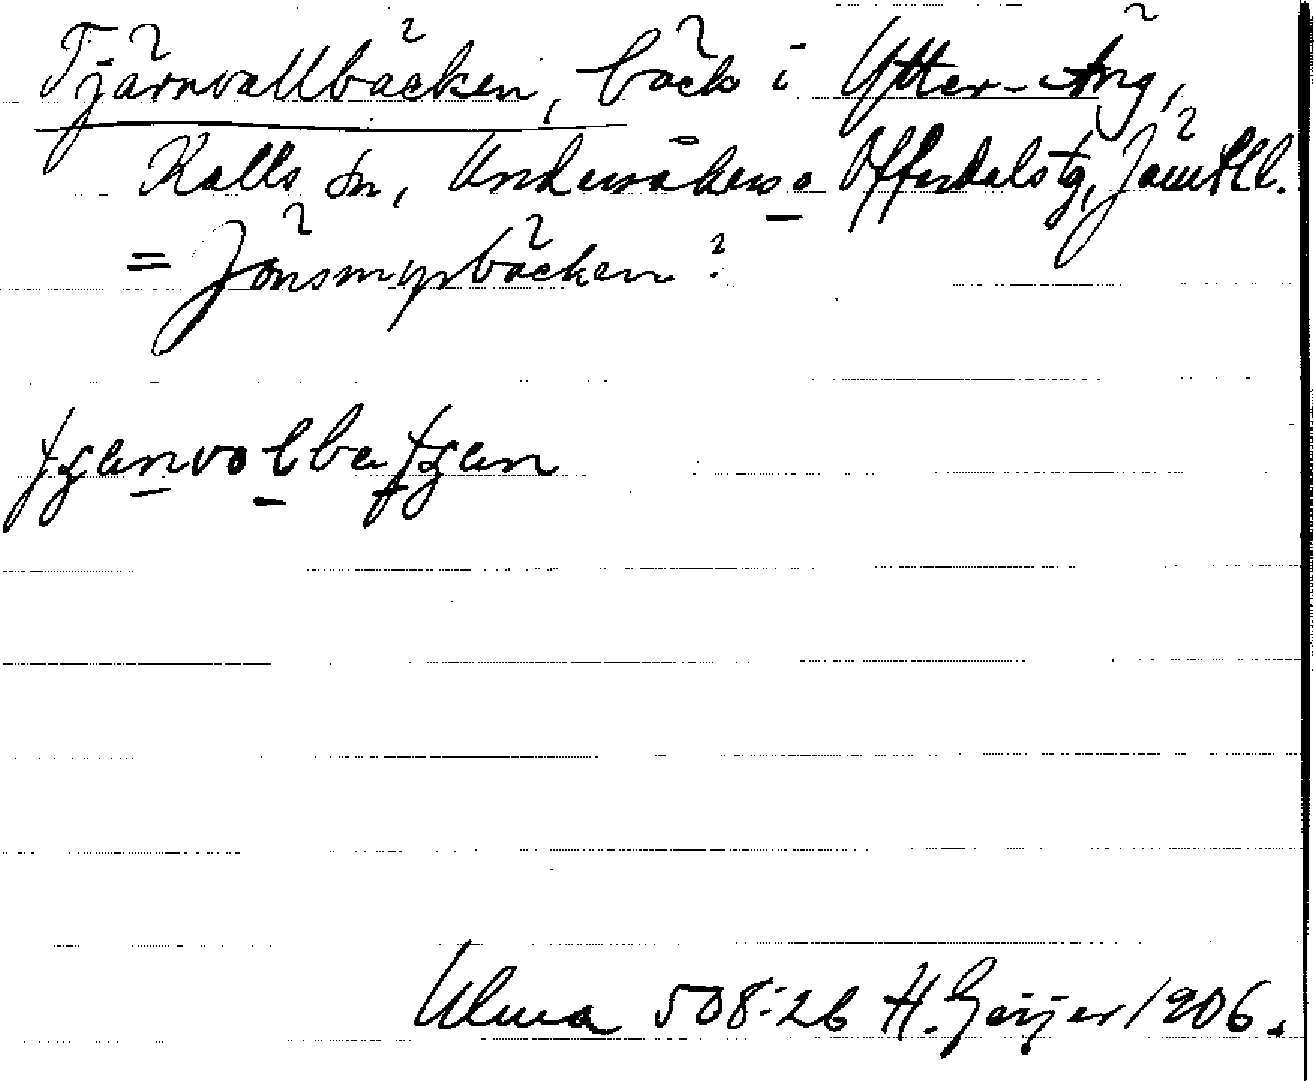 Tjärnvallbäcken, bäck i Ytter-Äng,
Kalls sn, Undersåkers o Offerdals tg, Jämtl l.
= Jönsmyrbäcken?
Ulma 508:26 H. Geijer 1906.